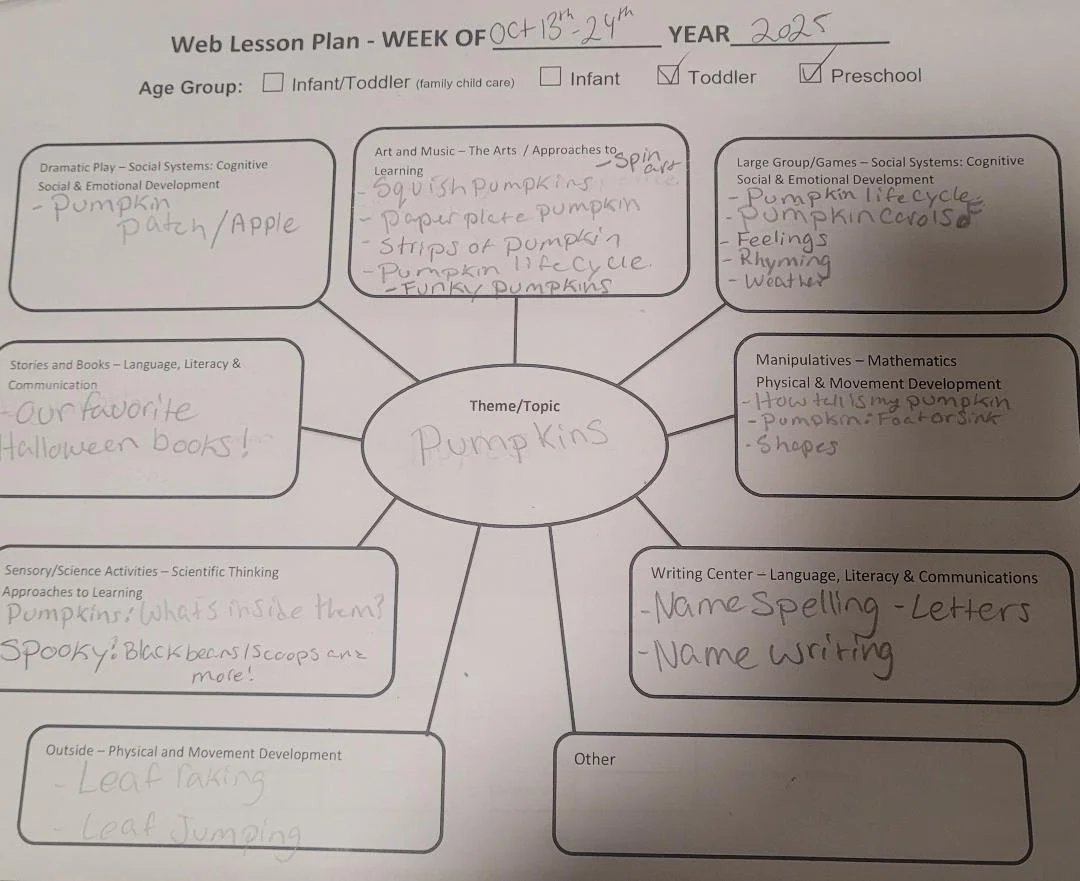 Web Lesson Plan - WEEK OF Oct 13th-24th YEAR 2025
Age Group: Infant/Toddler (family child care) Infant Toddler Preschool
Dramatic Play – Social Systems: Cognitive
Social & Emotional Development
- Pumpkin
patch/Apple
Art and Music – The Arts / Approaches to
Learning
- Spin
art
- Squish pumpkins
- paper plate pumpkin
- Strips of pumpkin
- Pumpkin lifecycle.
- Funky pumpkins
Large Group/Games – Social Systems: Cognitive
Social & Emotional Development
- Pumpkin life cycle
- Pumpkin carols
- Feelings
- Rhyming
- Weather
Stories and Books – Language, Literacy &
Communication
- Our favorite
Halloween books!
Theme/Topic
Pumpkins
Manipulatives – Mathematics
Physical & Movement Development
- How tall is my pumpkin
- Pumpkin: Foat or Sink
- Shapes
Sensory/Science Activities – Scientific Thinking
Approaches to Learning
Pumpkins: Whats inside them?
Spooky: Black beans/Scoops and
more!
Writing Center – Language, Literacy & Communications
- Name Spelling - Letters
- Name writing
Outside – Physical and Movement Development
- Leaf raking
- Leaf Jumping
Other